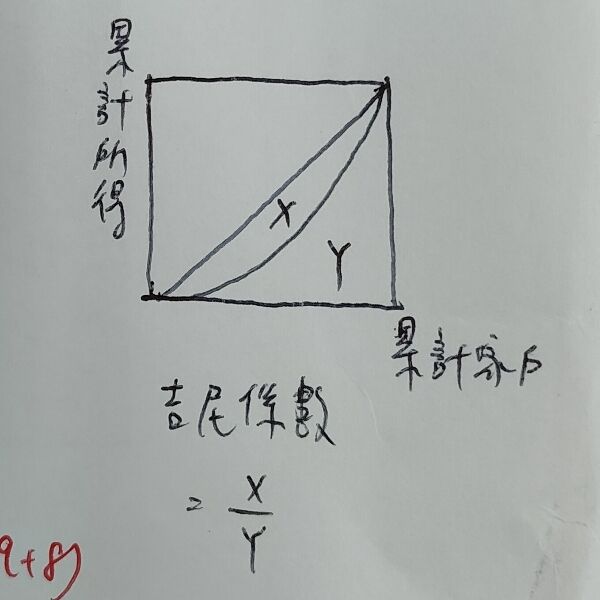 累計所得
X
Y
累計家戶
吉尼係數
= X
Y
9+8)